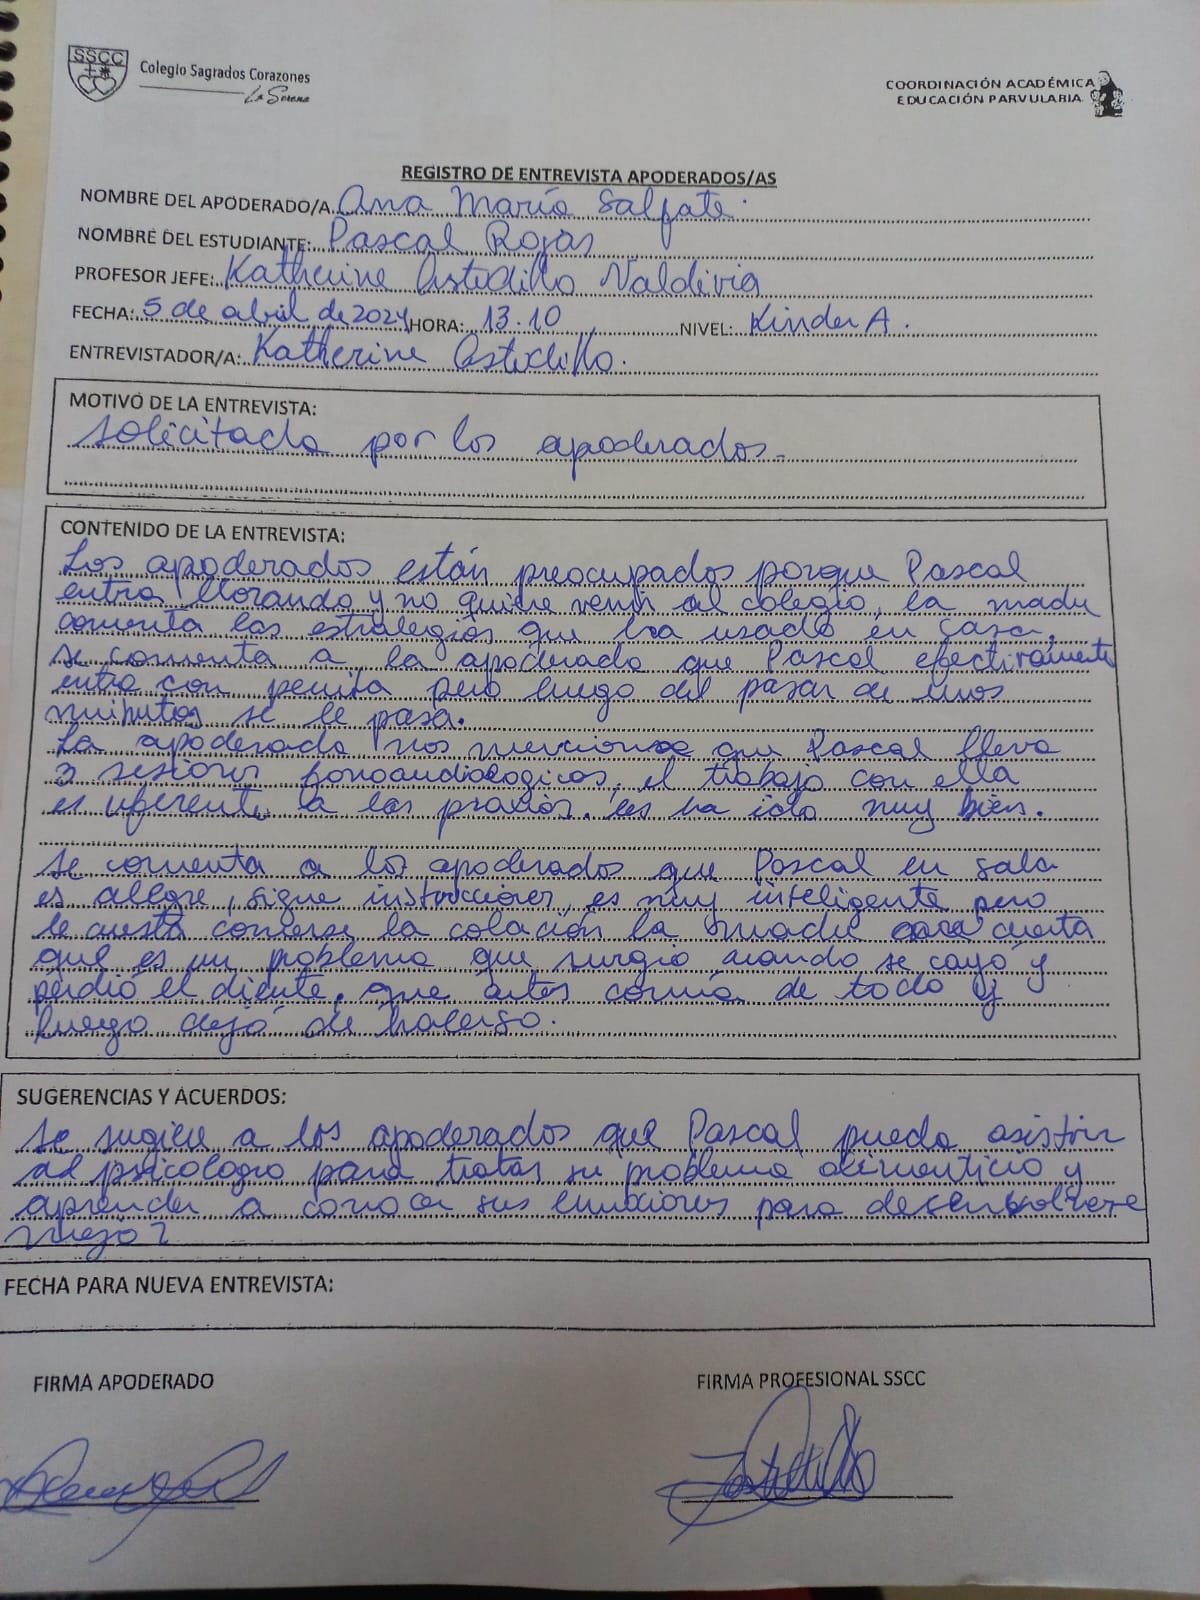 SSCC
Colegio Sagrados Corazones
La Serena
COORDINACIÓN ACADÉMICA
EDUCACIÓN PARVULARIA
REGISTRO DE ENTREVISTA APODERADOS/AS
NOMBRE DEL APODERADO/A Ana María Salfate.
NOMBRE DEL ESTUDIANTE: Pascal Rojas
PROFESOR JEFE: Katherine Astudillo Valdivia
FECHA: 5 de abril de 2024 HORA: 13.10 NIVEL: Kinder A.
ENTREVISTADOR/A: Katherine Astudillo.
MOTIVO DE LA ENTREVISTA:
Solicitada por los apoderados.
CONTENIDO DE LA ENTREVISTA:
Los apoderados están preocupados porque Pascal
entra llorando y no quiere venir al colegio, la madre
comenta las estrategias que ha usado en casa.
se comenta a la apoderada que Pascal efectivamente
entra con penita pero luego del pasar de unos
minutos se le pasa.
La apoderada nos menciona que Pascal lleva
3 sesiones fonoaudiologicas, el trabajo con ella
es referente a las praxias. les ha ido muy bien.
Se comenta a los apoderados que Pascal en sala
es alegre, sigue instrucciones, es muy inteligente pero
le cuesta comerse la colación la madre cuenta
que es un problema que surgió cuando se cayó y
perdió el diente, que antes comía de todo y
luego dejó de hacerlo.
SUGERENCIAS Y ACUERDOS:
Se sugiere a los apoderados que Pascal pueda asistir
al psicologo para tratar su problema alimenticio y
aprender a conocer sus emociones para desenvolverse
mejor
FECHA PARA NUEVA ENTREVISTA:
FIRMA APODERADO FIRMA PROFESIONAL SSCC